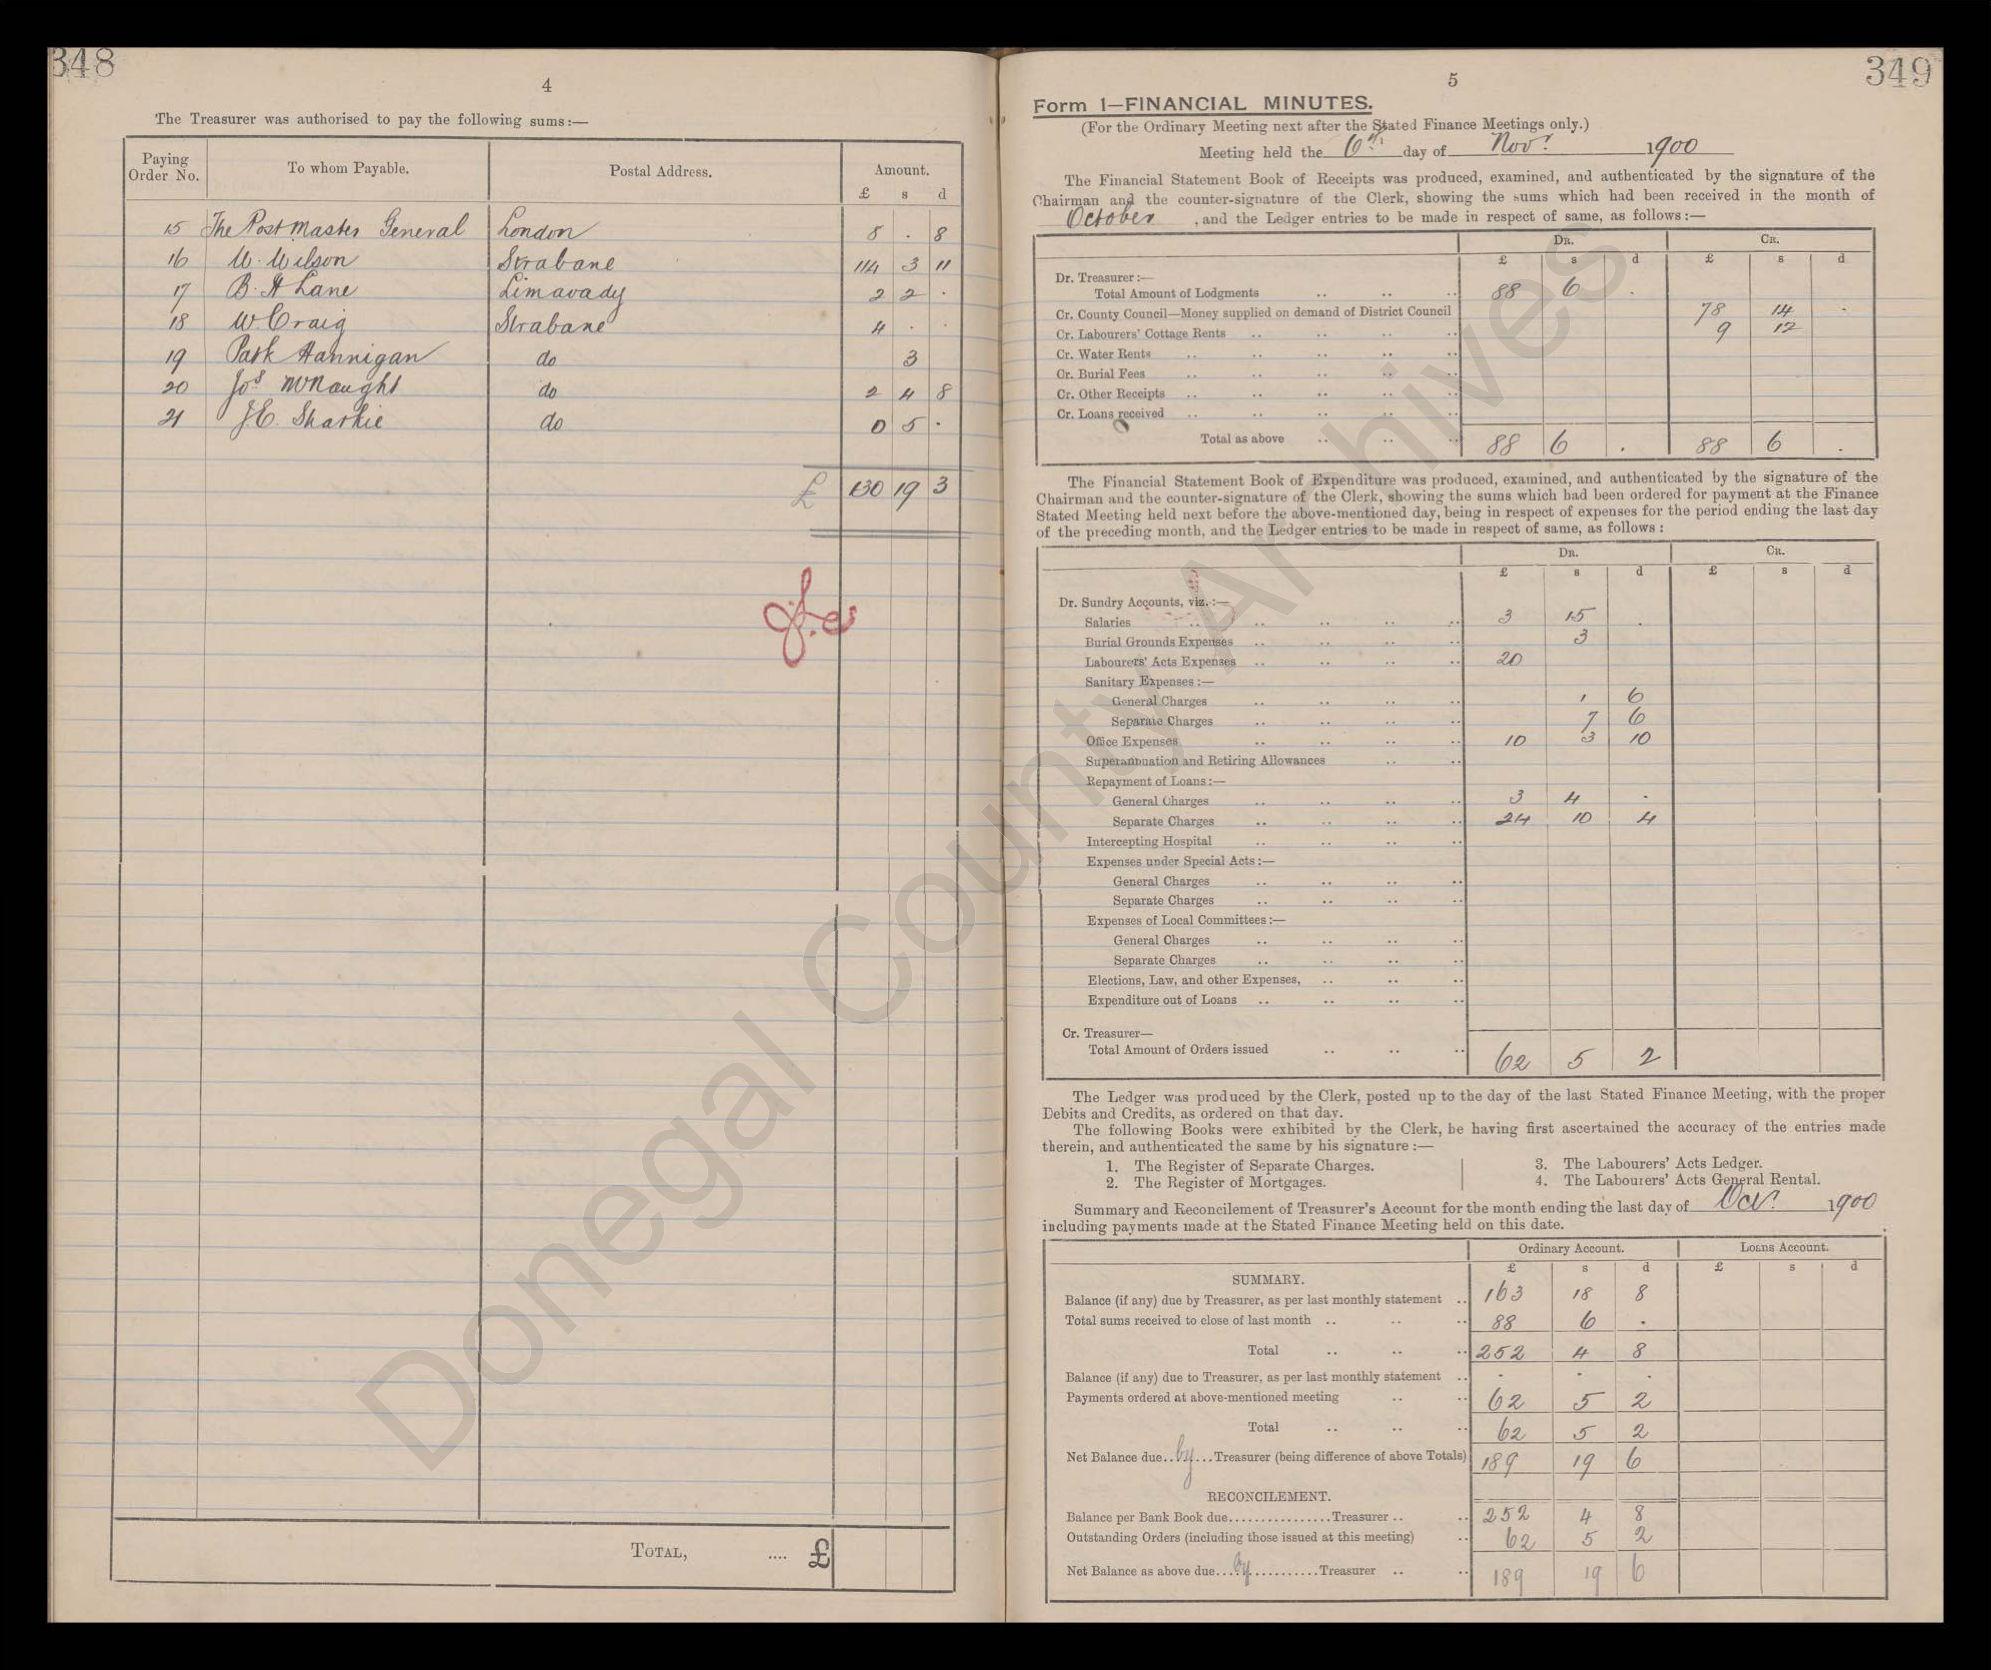 348
4
The Treasurer was authorised to pay the following sums:—
Paying Order No. To whom Payable. Postal Address. Amount.
£ s d
15 The Postmaster General London 8 . 8
16 W. Wilson Strabane 114 3 11
17 B. H Lane Limavady 2 2 .
18 W. Craig Strabane 4 . .
19 Patk Hannigan do 3
20 Jos McNaught do 2 4 8
21 J.C. Sharkie do 0 5 .
£ 130 19 3
TOTAL, .... £
349
5
Form 1—FINANCIAL MINUTES.
(For the Ordinary Meeting next after the Stated Finance Meetings only.)
Meeting held the 6th day of Novr 1900
The Financial Statement Book of Receipts was produced, examined, and authenticated by the signature of the
Chairman and the counter-signature of the Clerk, showing the sums which had been received in the month of
October , and the Ledger entries to be made in respect of same, as follows:—
DR. CR.
£ s d £ s d
Dr. Treasurer:—
Total Amount of Lodgments .. .. .. 88 6 .
Cr. County Council—Money supplied on demand of District Council 78 14 .
Cr. Labourers' Cottage Rents .. .. .. .. 9 12
Cr. Water Rents .. .. .. .. ..
Cr. Burial Fees .. .. .. .. ..
Cr. Other Receipts .. .. .. .. ..
Cr. Loans received .. .. .. .. ..
Total as above .. .. .. 88 6 . 88 6 .
The Financial Statement Book of Expenditure was produced, examined, and authenticated by the signature of the
Chairman and the counter-signature of the Clerk, showing the sums which had been ordered for payment at the Finance
Stated Meeting held next before the above-mentioned day, being in respect of expenses for the period ending the last day
of the preceding month, and the Ledger entries to be made in respect of same, as follows:
DR. CR.
£ s d £ s d
Dr. Sundry Accounts, viz.:—
Salaries .. .. .. .. .. 3 15 .
Burial Grounds Expenses .. .. .. .. 3
Labourers' Acts Expenses .. .. .. .. 20
Sanitary Expenses:—
General Charges .. .. .. .. 1 6
Separate Charges .. .. .. .. 7 6
Office Expenses .. .. .. .. 10 3 10
Superannuation and Retiring Allowances .. ..
Repayment of Loans:—
General Charges .. .. .. .. 3 4 .
Separate Charges .. .. .. .. 24 10 4
Intercepting Hospital .. .. .. ..
Expenses under Special Acts:—
General Charges .. .. .. ..
Separate Charges .. .. .. ..
Expenses of Local Committees:—
General Charges .. .. .. ..
Separate Charges .. .. .. ..
Elections, Law, and other Expenses, .. .. ..
Expenditure out of Loans .. .. .. ..
Cr. Treasurer—
Total Amount of Orders issued .. .. .. 62 5 2
The Ledger was produced by the Clerk, posted up to the day of the last Stated Finance Meeting, with the proper
Debits and Credits, as ordered on that day.
The following Books were exhibited by the Clerk, he having first ascertained the accuracy of the entries made
therein, and authenticated the same by his signature:—
1. The Register of Separate Charges. 3. The Labourers' Acts Ledger.
2. The Register of Mortgages. 4. The Labourers' Acts General Rental.
Summary and Reconcilement of Treasurer's Account for the month ending the last day of Octr 1900
including payments made at the Stated Finance Meeting held on this date.
Ordinary Account. Loans Account.
£ s d £ s d
SUMMARY.
Balance (if any) due by Treasurer, as per last monthly statement .. 163 18 8
Total sums received to close of last month .. .. .. 88 6 .
Total .. .. .. 252 4 8
Balance (if any) due to Treasurer, as per last monthly statement .. . . .
Payments ordered at above-mentioned meeting .. .. 62 5 2
Total .. .. .. 62 5 2
Net Balance due..by....Treasurer (being difference of above Totals) 189 19 6
RECONCILEMENT.
Balance per Bank Book due................Treasurer .. .. 252 4 8
Outstanding Orders (including those issued at this meeting) .. 62 5 2
Net Balance as above due....by............Treasurer .. .. 189 19 6
Donegal County Archives